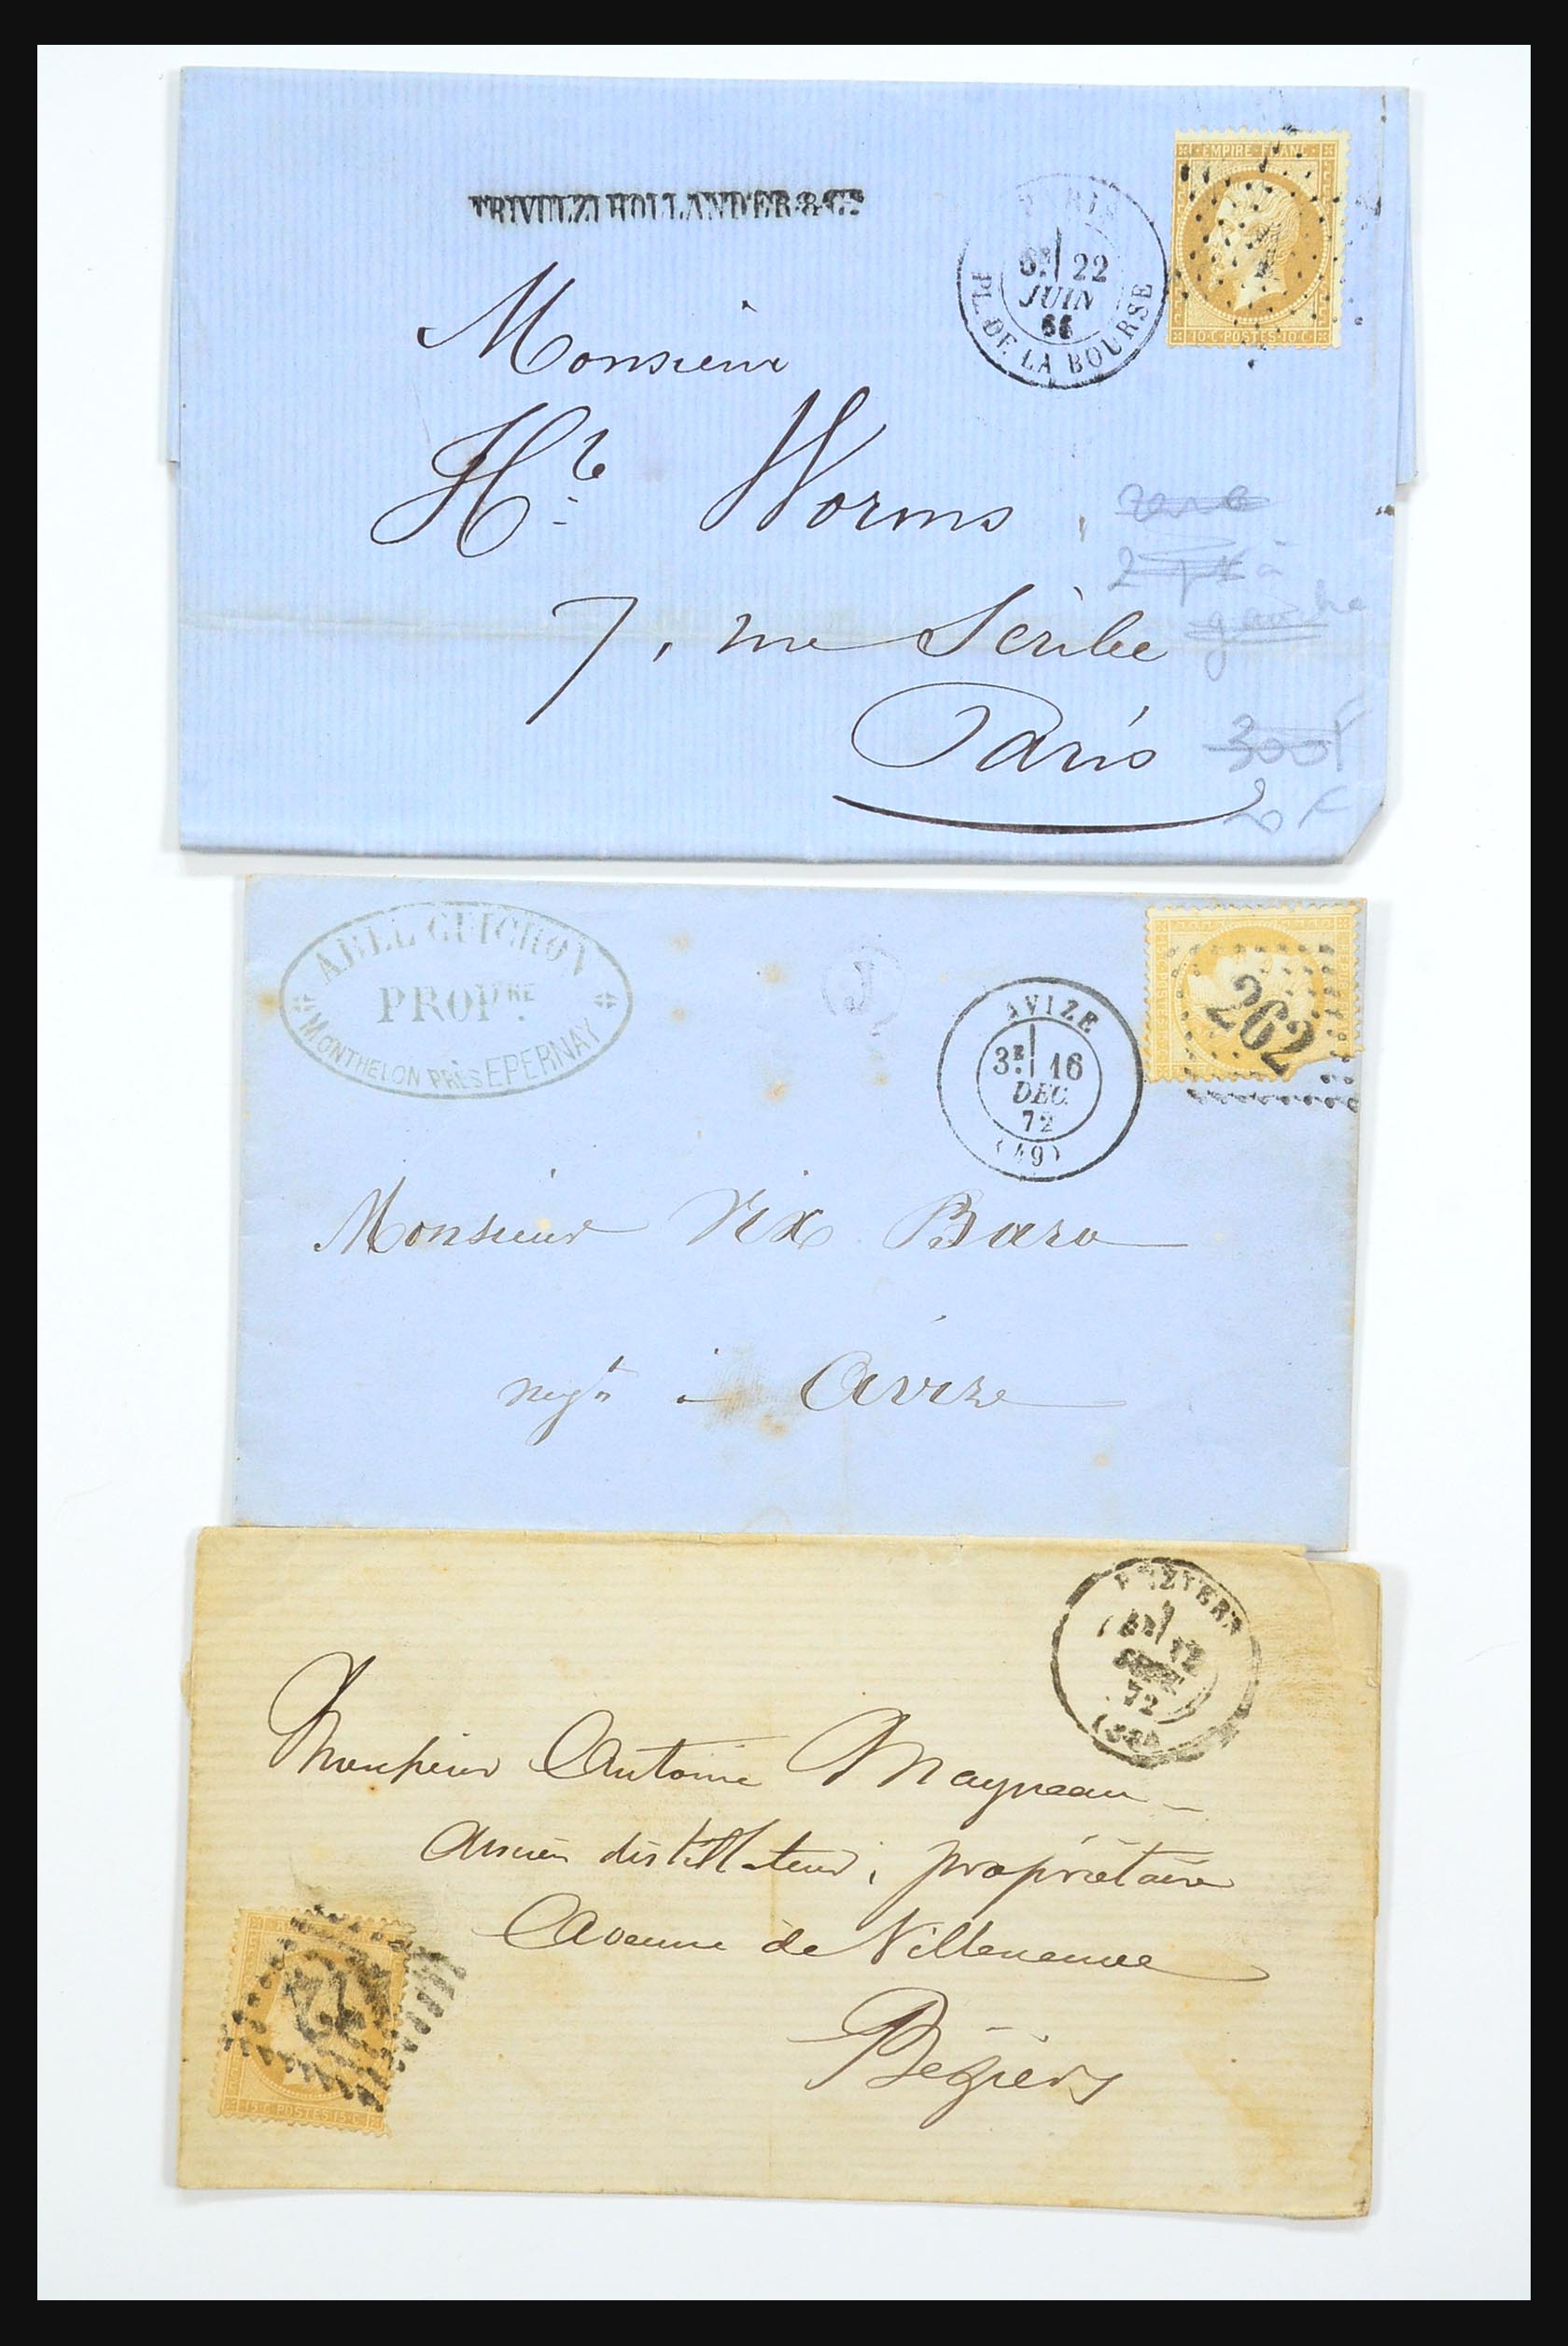 TRIVULZI HOLLANDER & Cie
EMPIRE FRANC
10·C·POSTES·10·C
PARIS
6E 22
JUIN
66
PL. DE LA BOURSE
Monsieur
Hte Worms
7, rue Scribe
Paris
rare
2
à
gauche
300F
20 F
ABEL GUICHON
PROPRE.
MONTHELON PRÈS EPERNAY
J
AVIZE
3E 16
DEC.
72
(49)
262
Monsieur Vix Bara
negt à Avize
BEZIERS
12
72
Monsieur Antoine Mayneau
Ancien distillateur, propriétaire
Avenue de Villeneuve
Béziers
15·C·POSTES·15·C